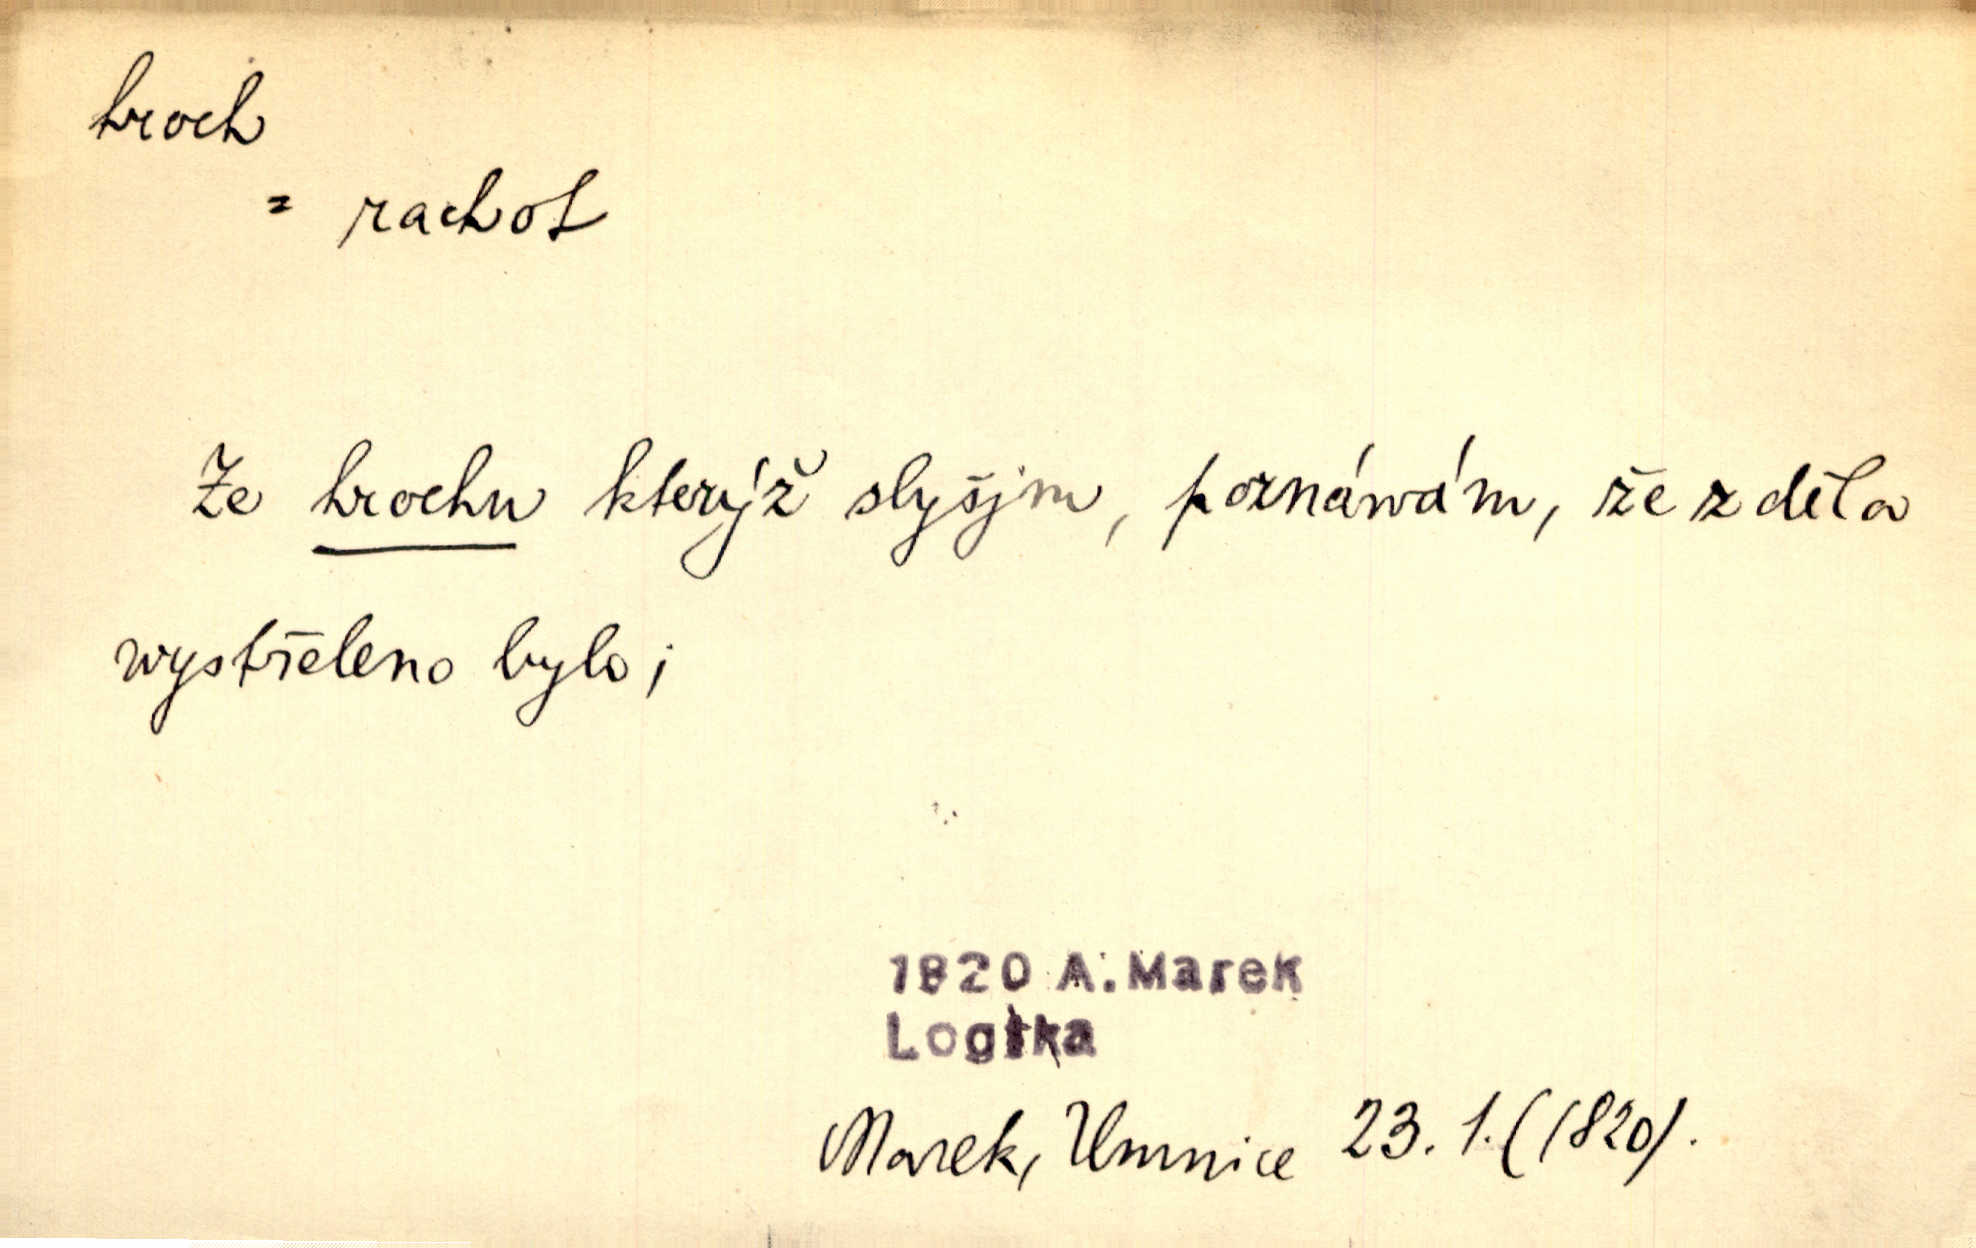 hroch
= rachot
Ze hrochu kterýž slyšjm, poznáwám, že z děla
wystřeleno bylo;
1820 A. Marek
Logika
Marek, Umnice 23. 1. (1820).